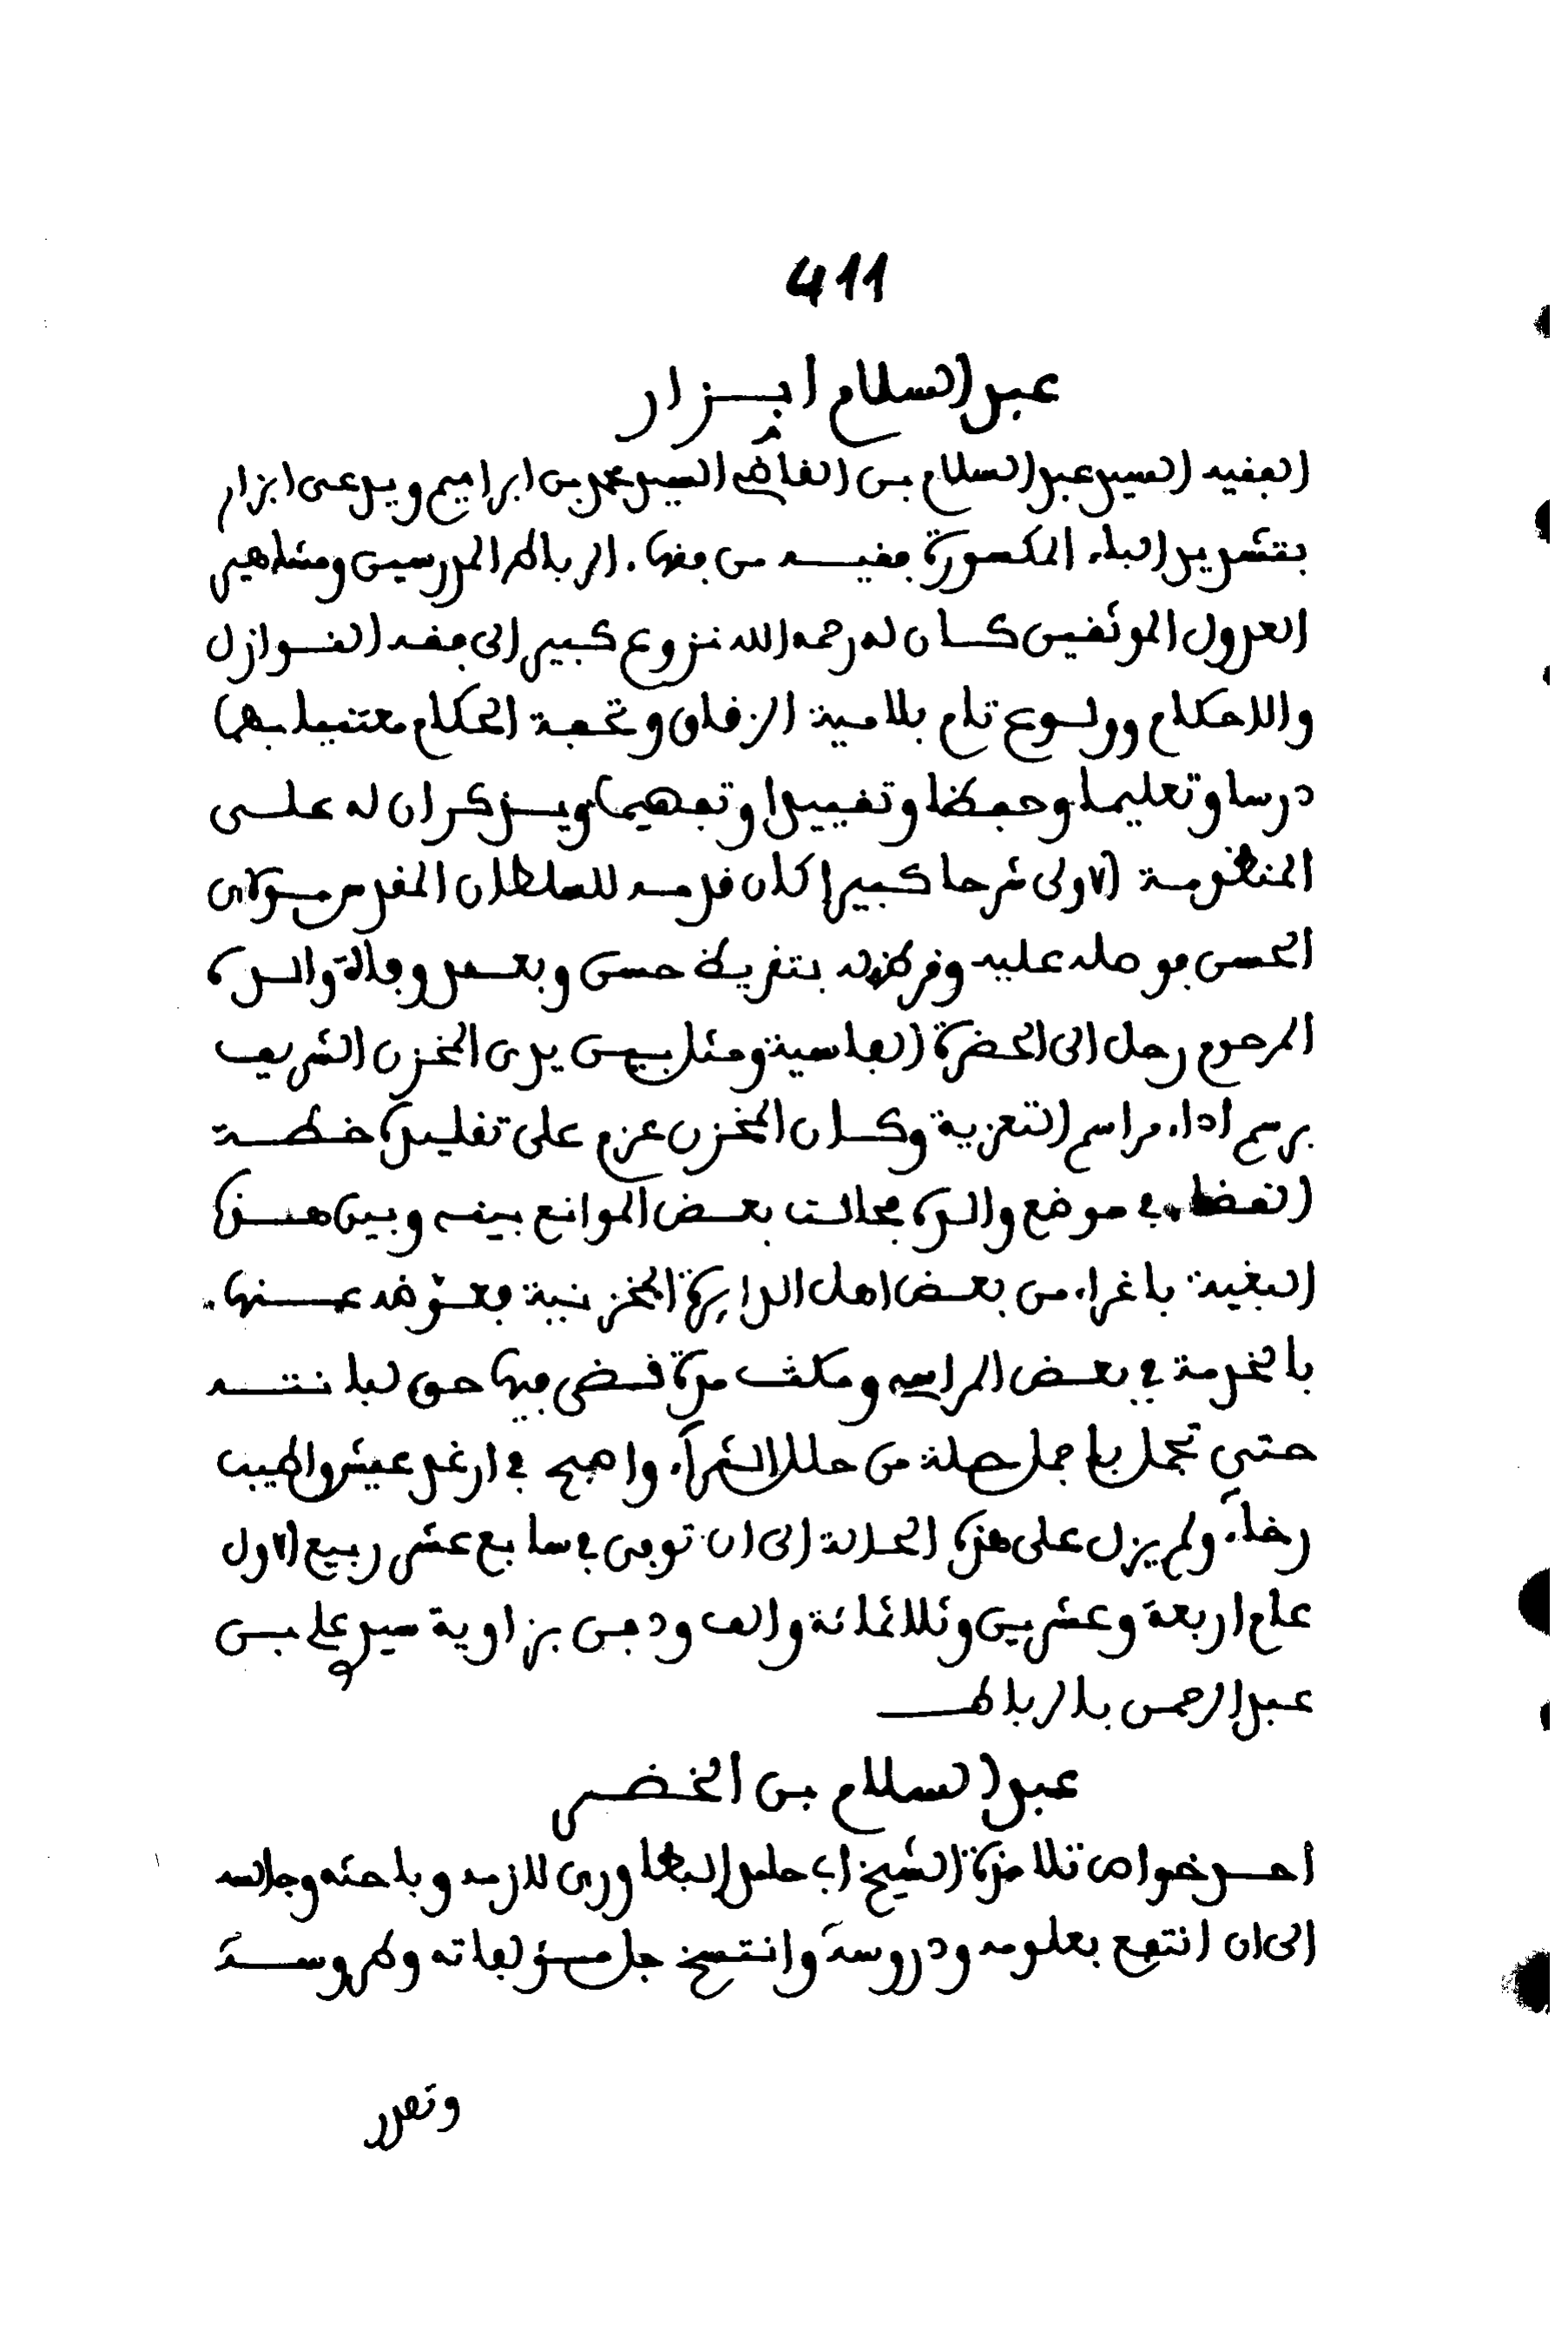 411
عبد السلام ابزار
الفقيه السيد عبد السلام بن القاضي السيد محمد بن ابراهيم ويدعى ابزار
بتشديد الباء المكسورة فقيه من فقهاء الرباط المدرسين ومشاهير
العدول الموثقين كان له رحمه الله نزوع كبير إلى فقه النوازل
والاحكام وولوع تام بلامية الزقاق وتحفة الحكام معتنيا بهما
درسا وتعليما وحفظا وتقييدا وتفهيما ويذكر ان له على
المنظومة الاولى شرحا كبيرا كان قدمه للسلطان المقدس مولاى
الحسن فوصله عليه وقرظه له بتقريظ حسن وبعد وفاة والده
المرحوم رحل الى الحضرة الفاسية ومثل بين يدى المخزن الشريف
برسم اداء مراسم التعزية وكان المخزن عزم على تقليده خطة
القضاء في موضع والده فحالت بعض الموانع بينه وبين هذه
البغية باغراء من بعض اهل الدايرة المخزنية فعوضه عنها
بالخدمة في بعض المراسي ومكث مدة قضى فيها حق لبانته
حتى تجمل باجمل حلة من حلل الثراء واصبح في ارغد عيش واطيب
رخاء ولم يزل على هذه الحالة الى ان توفى في سابع عشر ربيع الاول
عام اربعة وعشرين وثلاثمائة والف ودفن بزاوية سيدي علي بن
عبد الرحمن بالرباط
عبد السلام بن الخضر
احد خواص تلامذة الشيخ ابي حامد البطاورى لازمه وباحثه وجالسه
الى ان انتفع بعلومه ودروسه وانتسخ جل مؤلفاته وطروسه
وتصدر